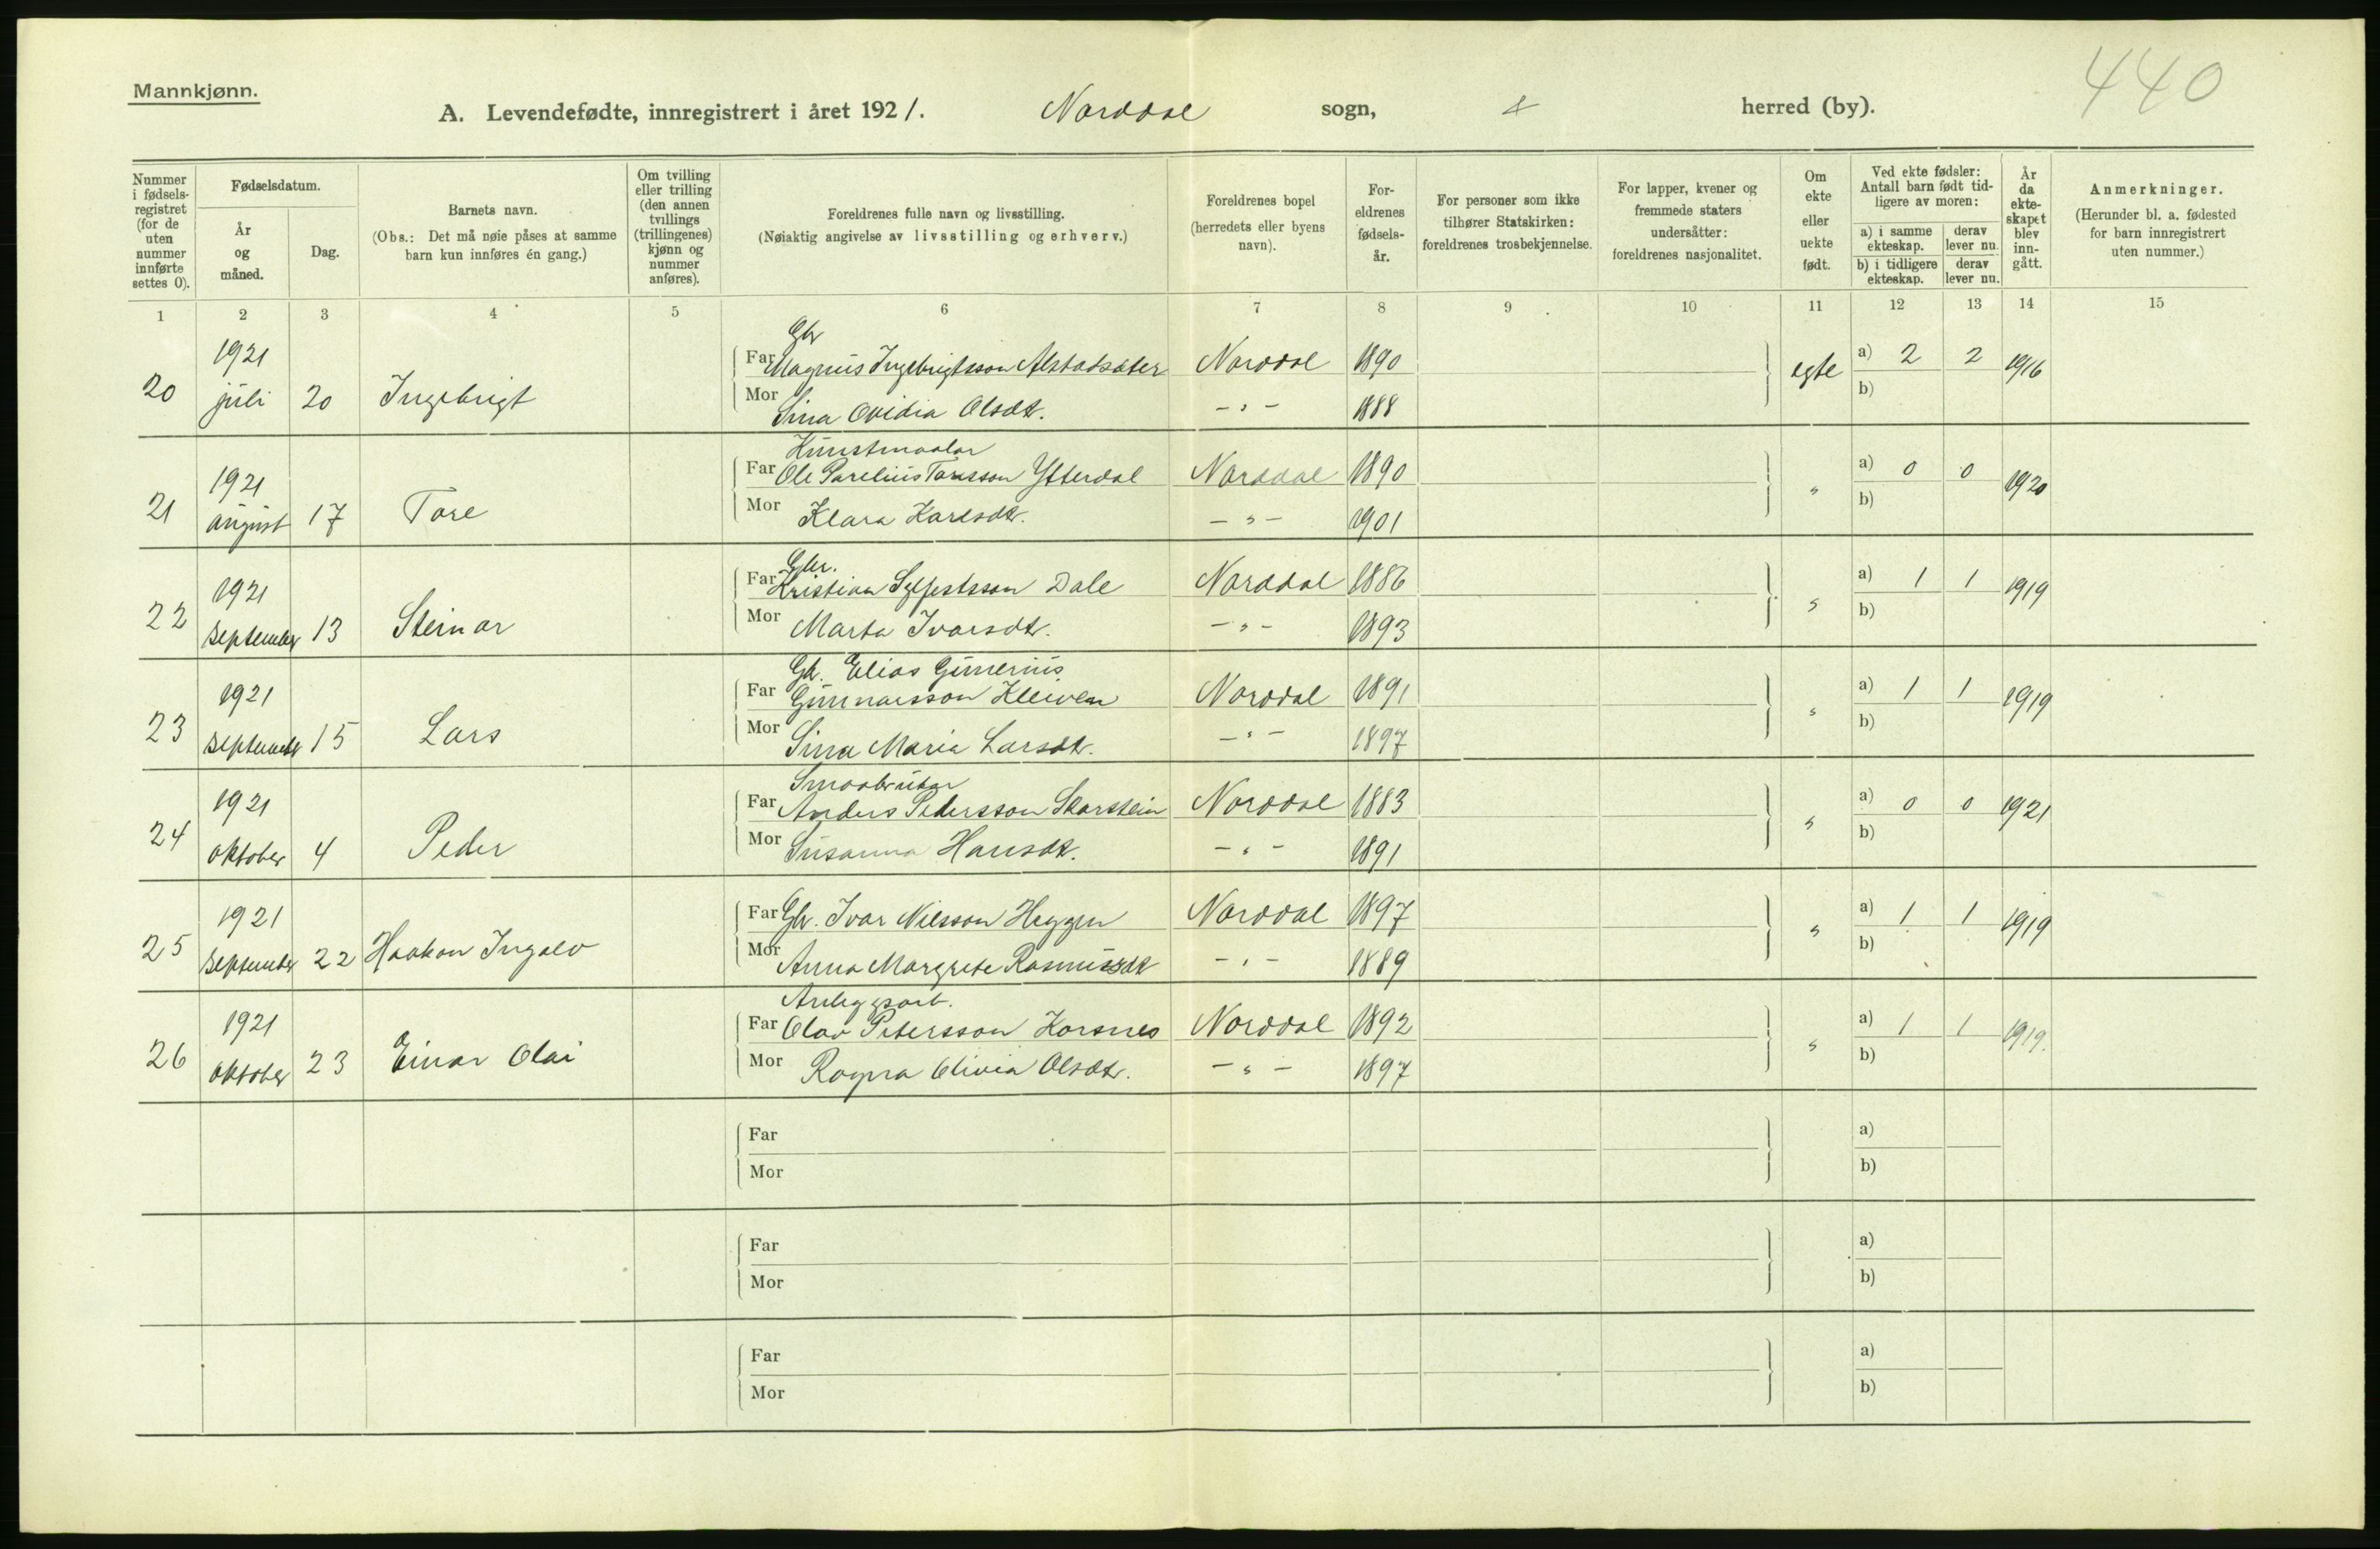 440
Mannkjønn.
A. Levendefødte, innregistrert i året 1921. Norddal sogn, herred (by).
Nummer i fødselsregistret (for de uten nummer innførte settes 0).
Fødselsdatum.
År og måned.
Dag.
Barnets navn.
(Obs.: Det må nøie påses at samme barn kun innføres én gang.)
Om tvilling eller trilling (den annen tvillings (trillingenes) kjønn og nummer anføres).
Foreldrenes fulle navn og livsstilling.
(Nøiaktig angivelse av livsstilling og erhverv.)
Foreldrenes bopel (herredets eller byens navn).
Foreldrenes fødselsår.
For personer som ikke tilhører Statskirken: foreldrenes trosbekjennelse.
For lapper, kvener og fremmede staters undersåtter: foreldrenes nasjonalitet.
Om ekte eller uekte født.
Ved ekte fødsler: Antall barn født tidligere av moren:
a) i samme ekteskap. derav lever nu.
b) i tidligere ekteskap. derav lever nu.
År da ekteskapet blev inngått.
Anmerkninger.
(Herunder bl. a. fødested for barn innregistrert uten nummer.)
1 2 3 4 5 6 7 8 9 10 11 12 13 14 15
Gbr
1921 Far Magnus Ingebrigtsson Alstadsæter Norddal 1890 egte a) 2 2 1916
20 juli 20 Ingebrigt Mor Sina Ovidia Olsdtr. - " - 1888 b)
Kunstmaalar
1921 Far Ole Parelius Toresson Ytterdal Norddal 1890 " a) 0 0 1920
21 august 17 Tore Mor Klara Karlsdtr. - " - 1901 b)
Gbr.
1921 Far Kristian Sylfestsson Dale Norddal 1886 " a) 1 1 1919
22 september 13 Steinar Mor Marta Ivarsdtr. - " - 1893 b)
Gbr. Elias Gunerius
1921 Far Gunnarsson Kleiven Norddal 1891 " a) 1 1 1919
23 september 15 Lars Mor Sina Maria Larsdtr. - " - 1897 b)
Smaabrukar
1921 Far Anders Pedersson Skarstein Norddal 1883 " a) 0 0 1921
24 oktober 4 Peder Mor Susanna Hansdtr. - " - 1891 b)
1921 Far Gbr. Ivar Nilsson Heggen Norddal 1897 " a) 1 1 1919
25 september 22 Haakon Ingolv Mor Anna Margrete Rasmusdtr - " - 1889 b)
Anleggsarb.
1921 Far Olav Petersson Korsnes Norddal 1892 " a) 1 1 1919.
26 oktober 23 Einar Olai Mor Ragna Olivia Olsdtr. - " - 1897 b)
Far a)
Mor b)
Far a)
Mor b)
Far a)
Mor b)